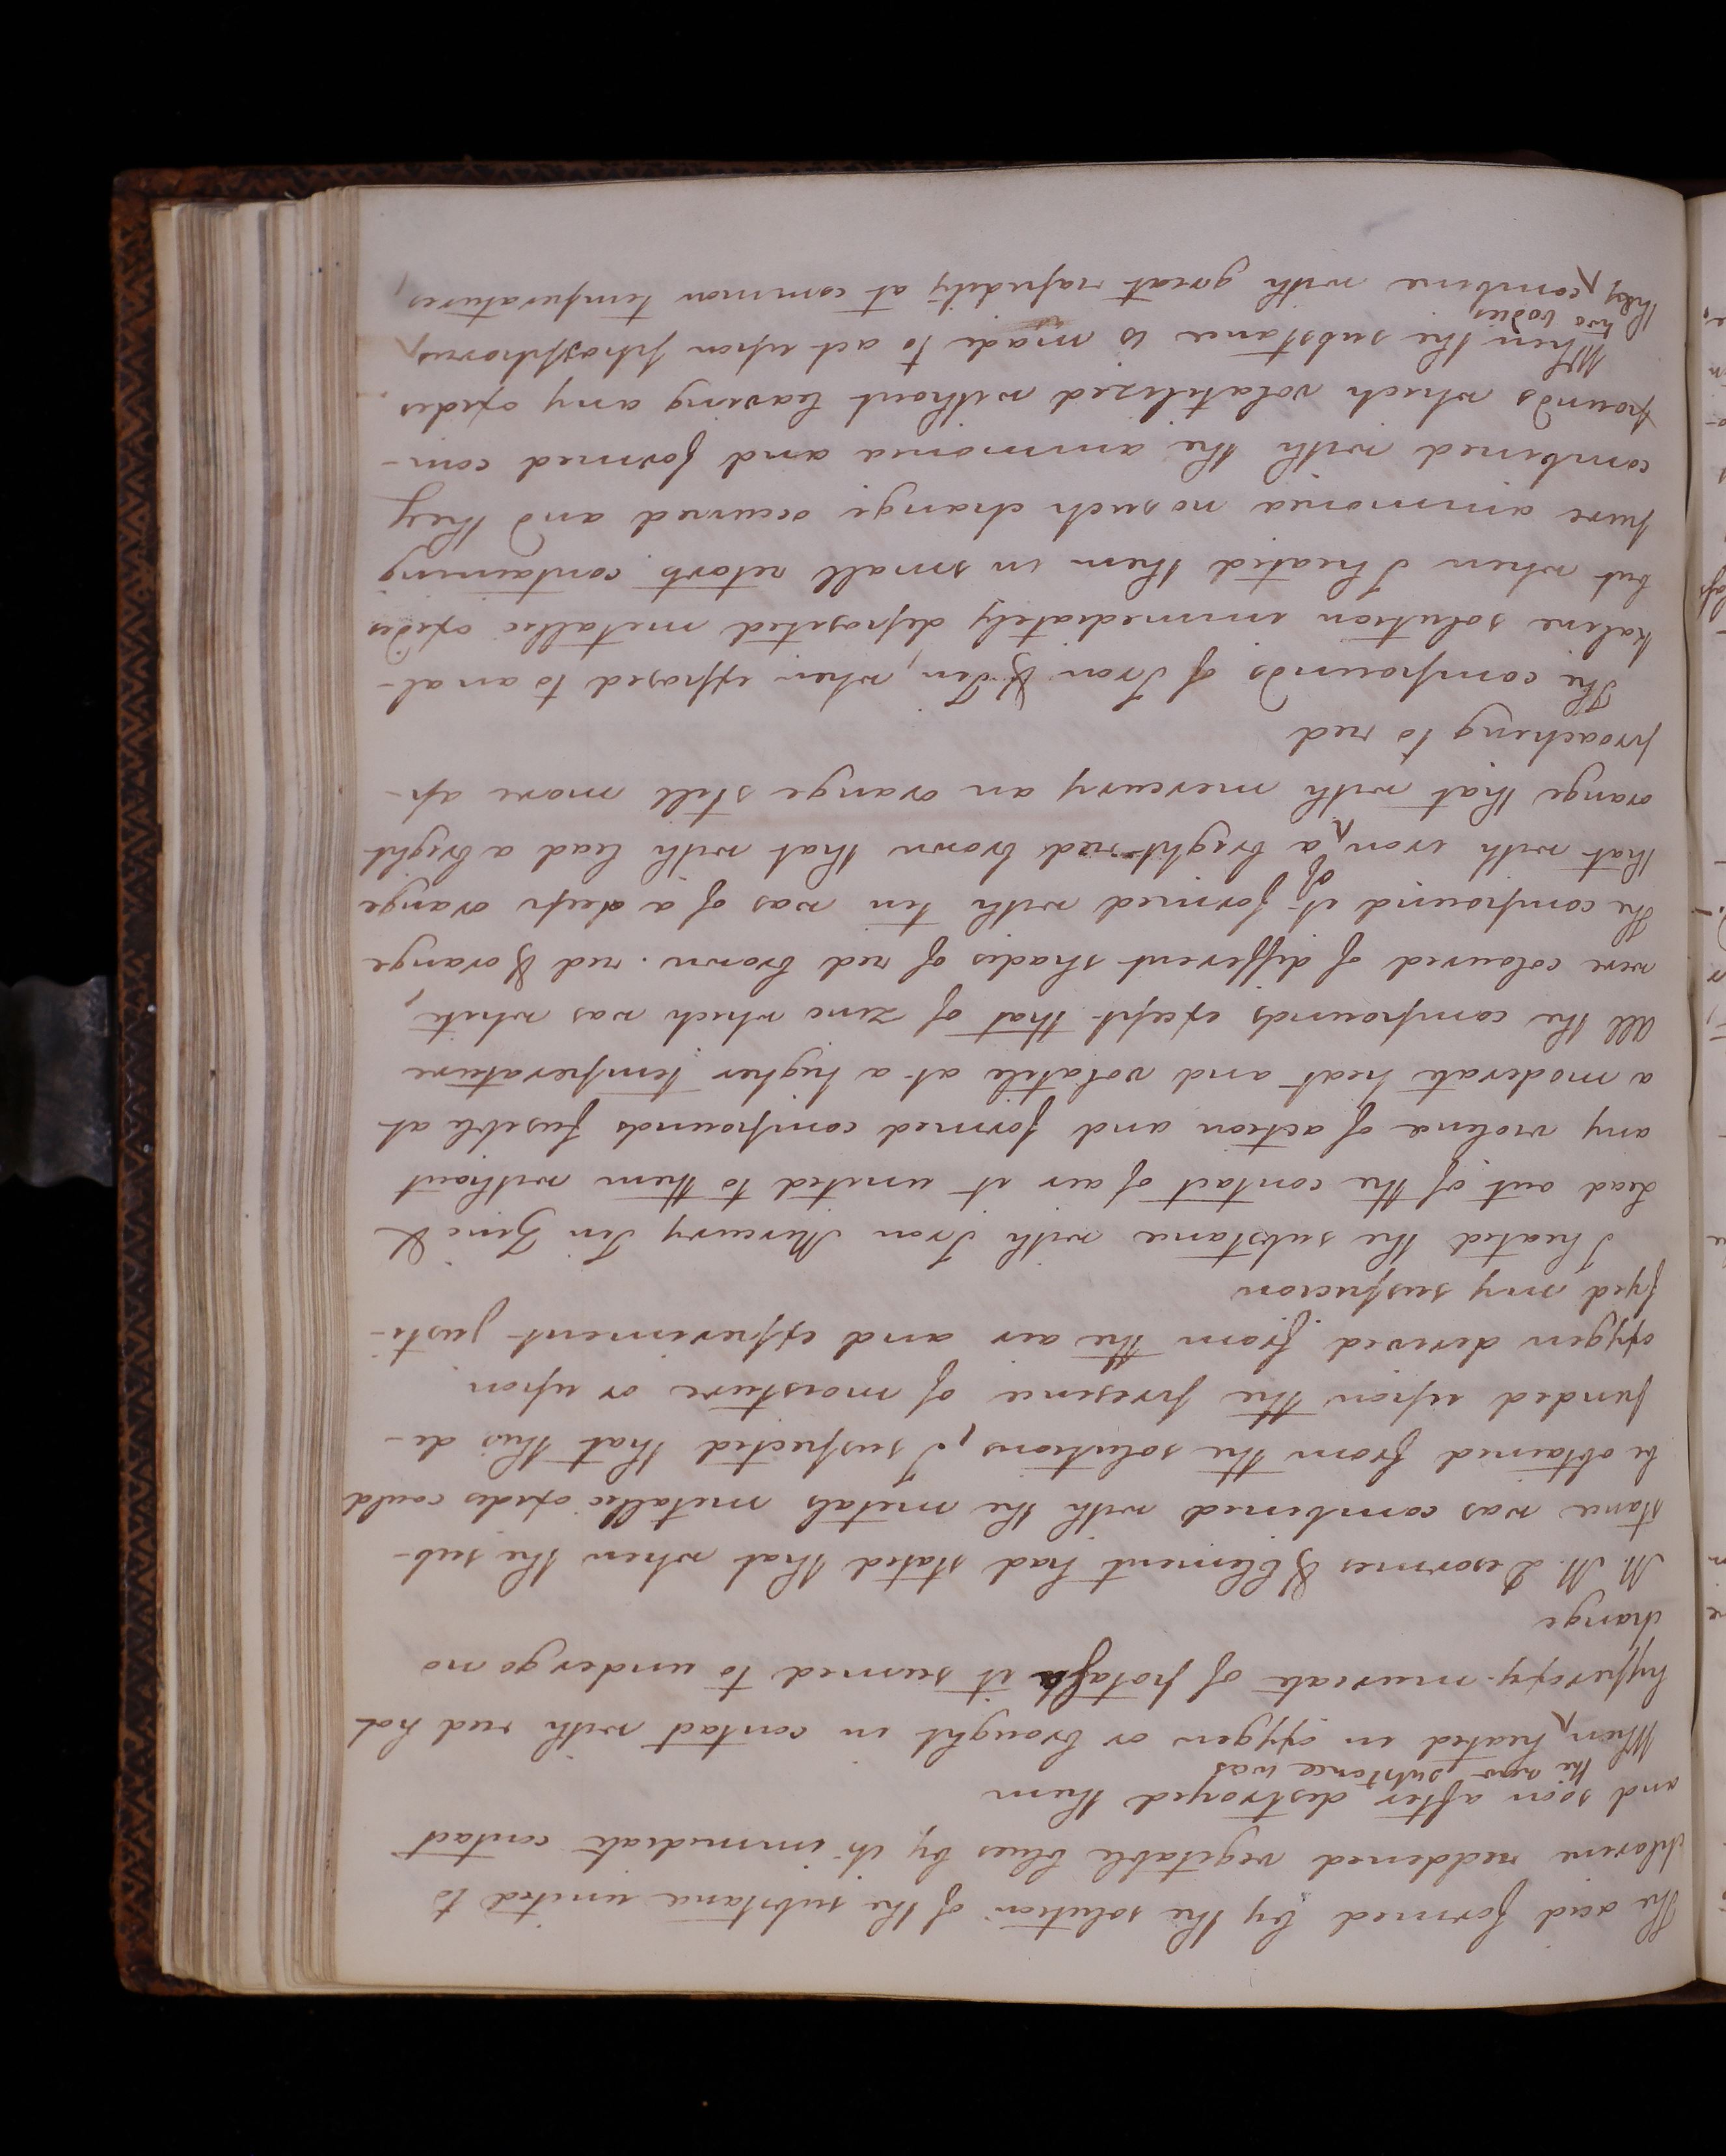 The acid formed by the solution of the substance united to
chlorine reddened vegitable blues by its immediate contact
and soon after destroyed them
the new substance was
When ^ heated in oxygen or brought in contact with red hot
hyperoxy-muriate of potash it seemed to undergo no
change
M. M. Desormes & Clement had stated that when the sub-
stance was combined with the metals metallic oxides could
be obtained from the solutions, I suspected that this de-
pended upon the presence of moisture or upon
oxygen derived from the air and experiment justi-
fyed my suspicion
I heated the substance with Iron Mercury Tin Zinc &
Lead out of the contact of air it united to them without
any violence of action and formed compounds fusible at
a moderate heat and volatile at a higher temperature
all the compounds except that of zinc which was white,
were coloured of different shades of red brown. red & orange
The compound it formed with tin was of a deep orange
of
that with iron ^ a bright red brown that with lead a bright
orange that with mercury an orange still more ap-
proaching to red
The compounds of Iron & Tin, when exposed to an al-
kaline solution immediately deposited metallic oxides
but when I heated them in small retorts containing
pure ammonia no such change occurred and they
combined with the ammonia and formed com-
pounds which volatilized without leaving any oxides
When the substance is made to act upon phosphorus,
two bodies
they ^ combine with great rapidity at common temperatures,